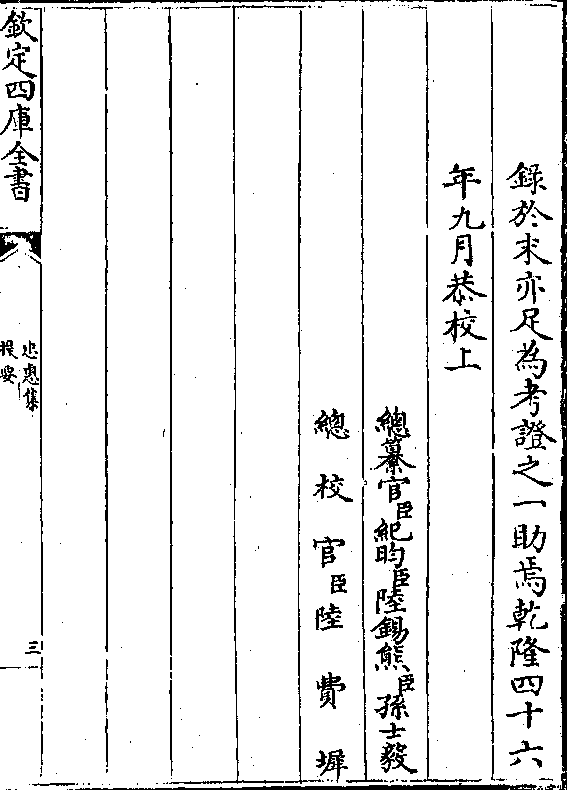 錄於末亦足為考證之一助焉乾隆四十六
年九月恭校上
總纂官臣紀昀臣陸錫熊臣孫士毅
總校官臣陸費墀
欽定四庫全書
忠惠集
提要
三